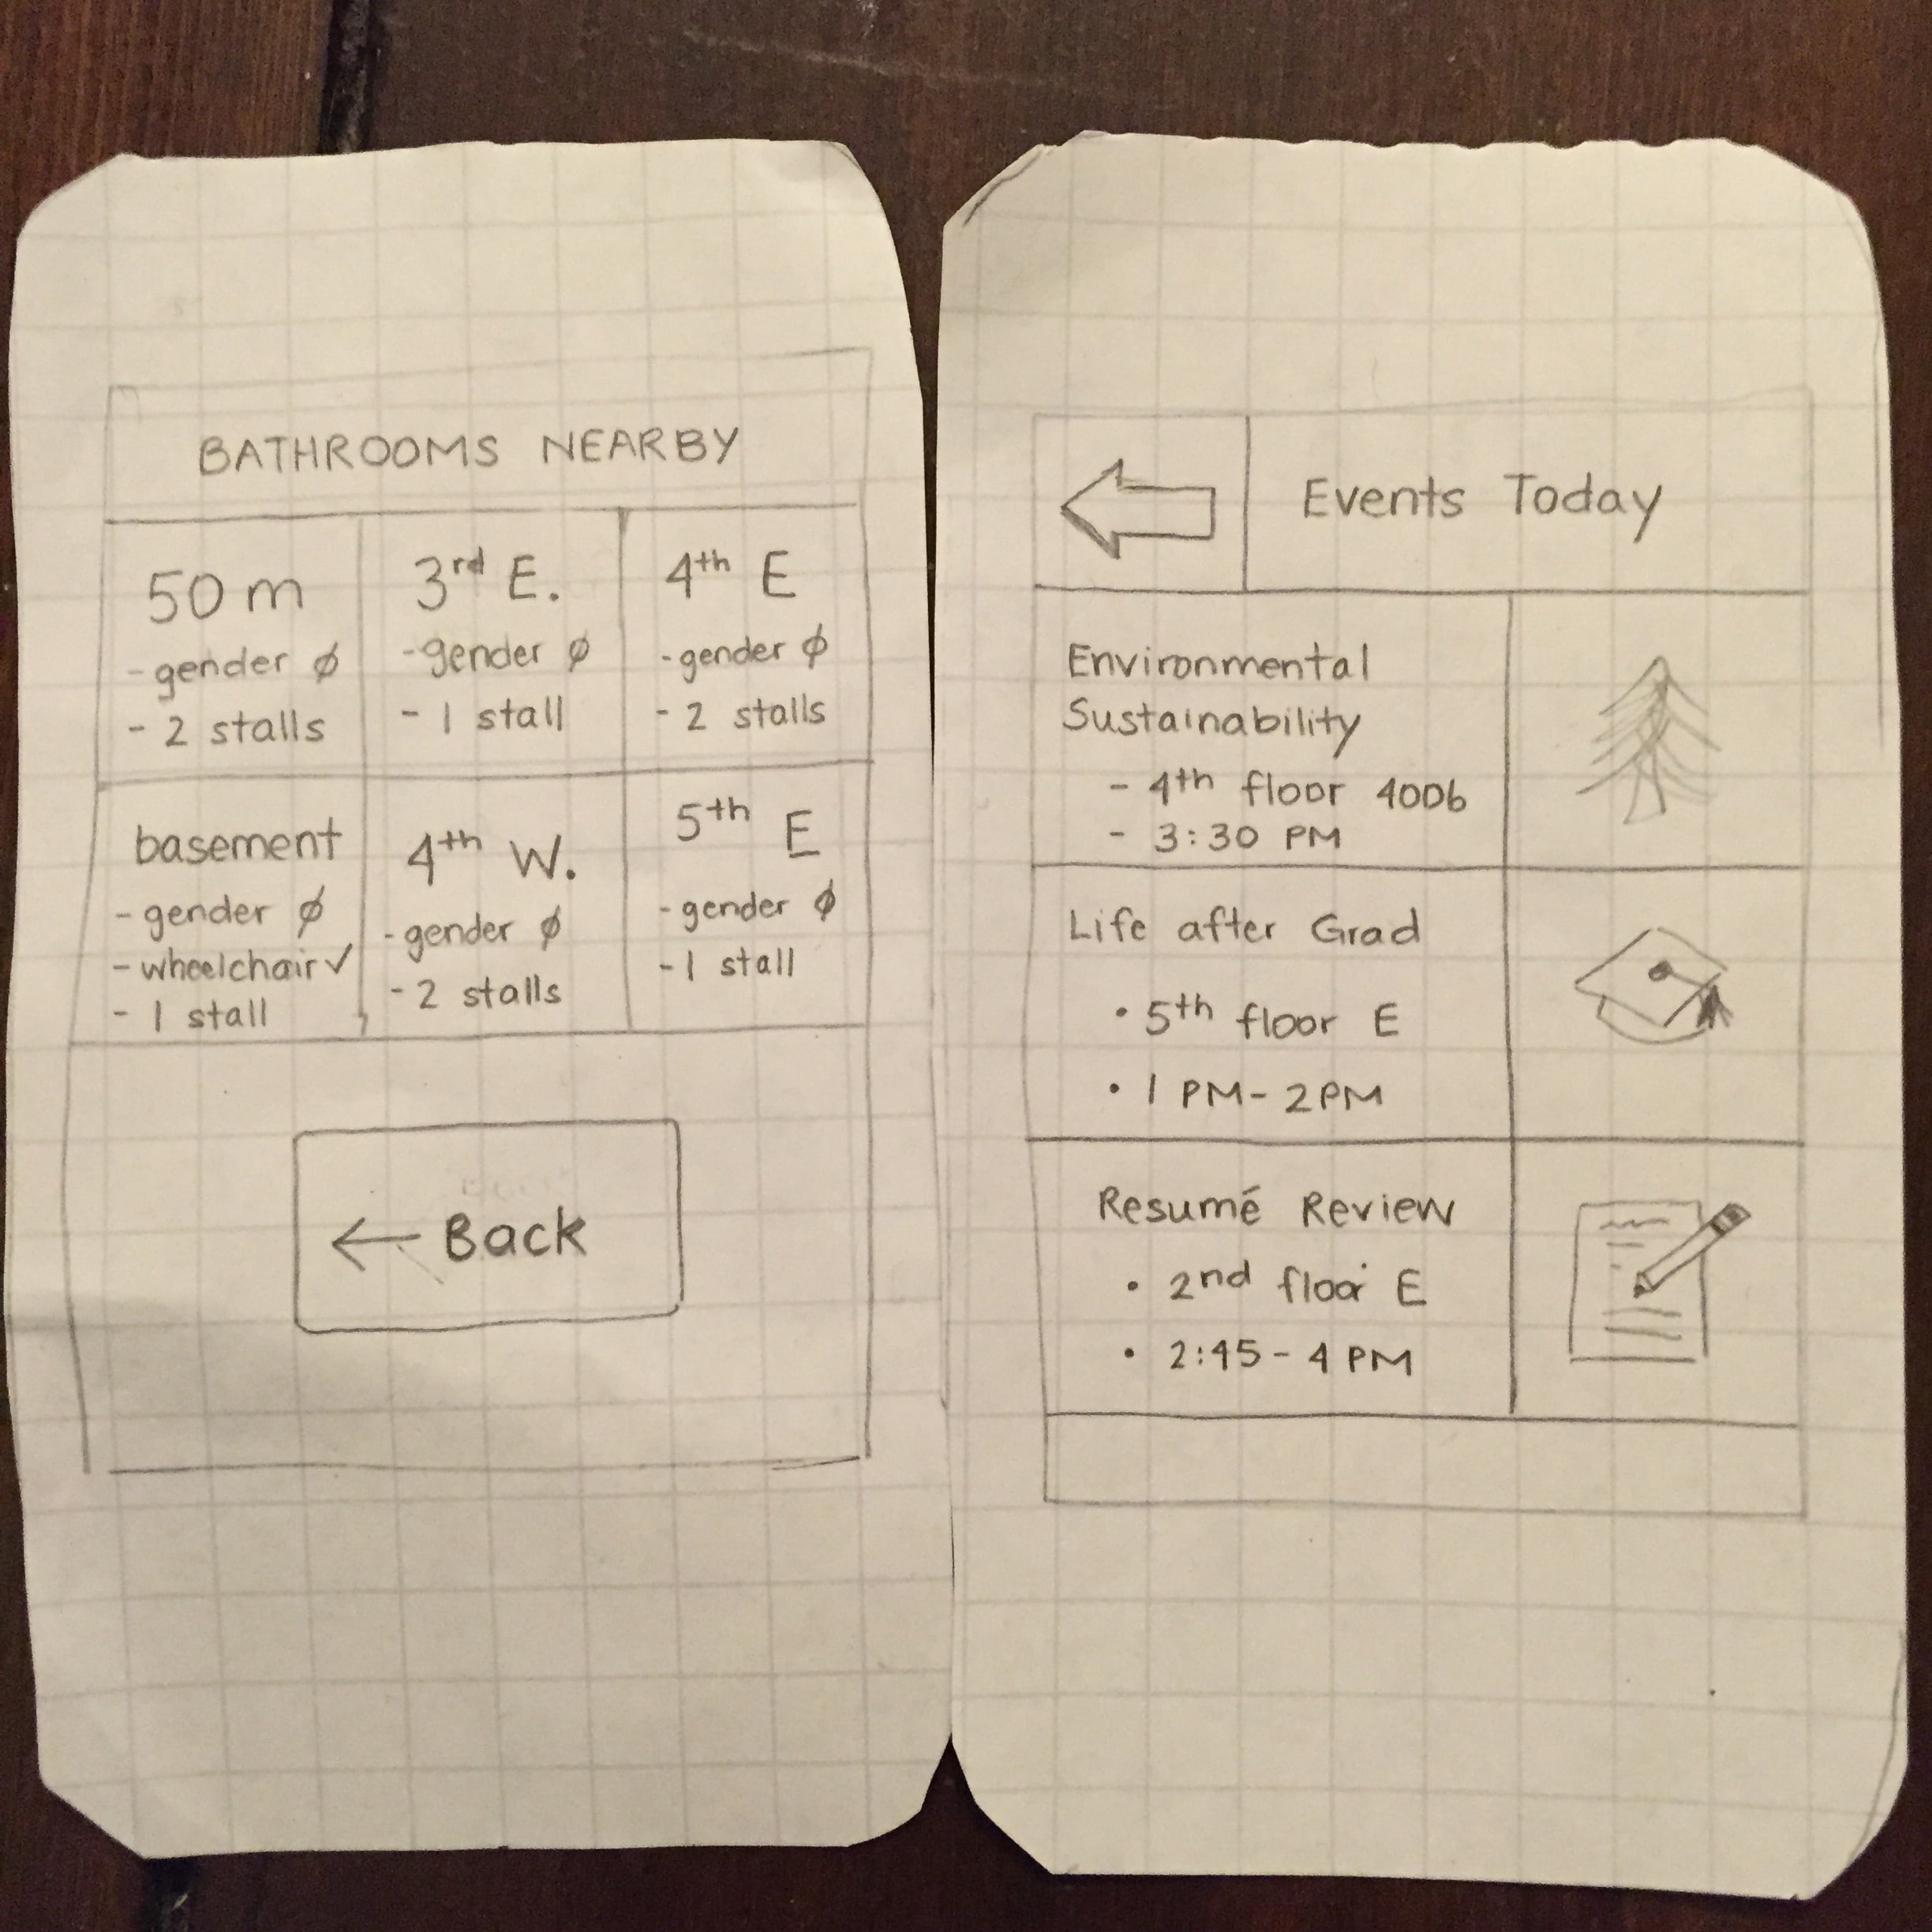 BATHROOMS NEARBY
50 m
- gender ∅
- 2 stalls
3rd E.
- gender ∅
- 1 stall
4th E
- gender ∅
- 2 stalls
basement
- gender ∅
- wheelchair ✓
- 1 stall
4th W.
- gender ∅
- 2 stalls
5th E
- gender ∅
- 1 stall
← Back
Events Today
Environmental
Sustainability
- 4th floor 4006
- 3:30 PM
Life after Grad
• 5th floor E
• 1 PM - 2 PM
Resumé Review
• 2nd floor E
• 2:45 - 4 PM